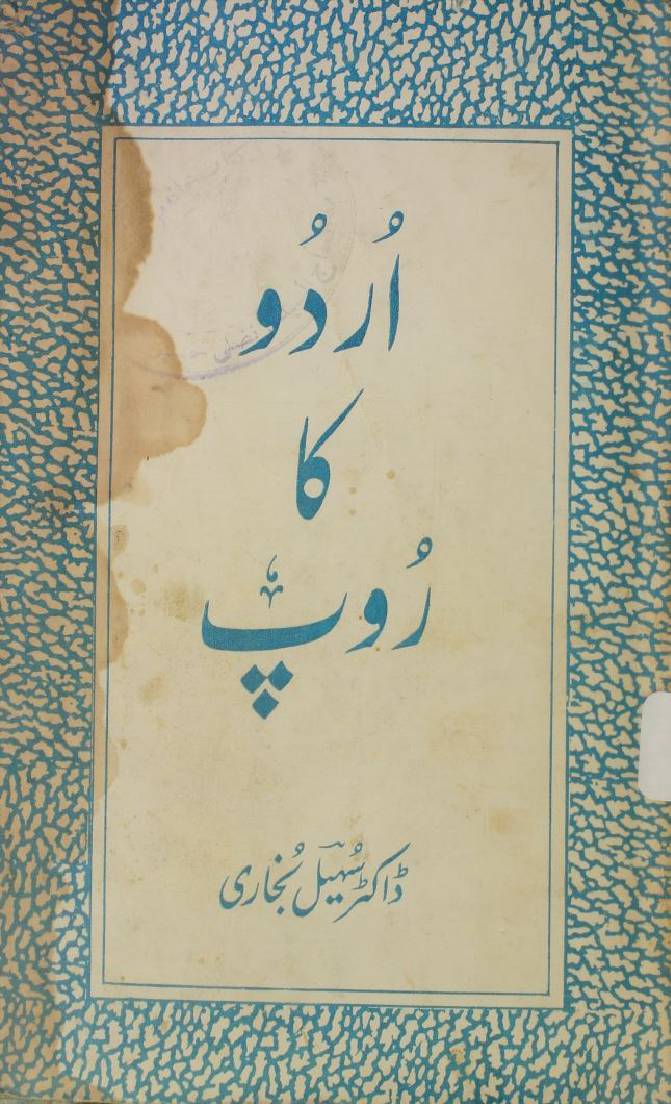 اُردُو
کا
رُوپ
ڈاکٹر سُہیل بُخاری